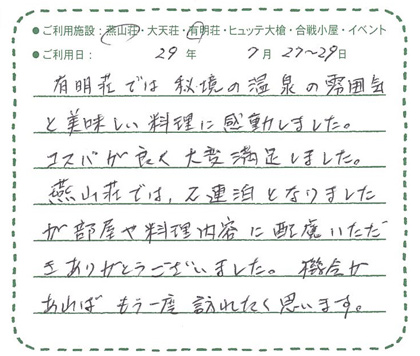 ●ご利用施設：燕山荘・大天荘・有明荘・ヒュッテ大槍・合戦小屋・イベント
●ご利用日： 29 年 7 月 27〜29 日
有明荘では 秘境の温泉の雰囲気
と美味しい料理に感動しました。
コスパが良く大変満足しました。
燕山荘では、2連泊となりました
が部屋や料理内容に配慮いただ
きありがとうございました。 機会が
あればもう一度 訪れたく思います。